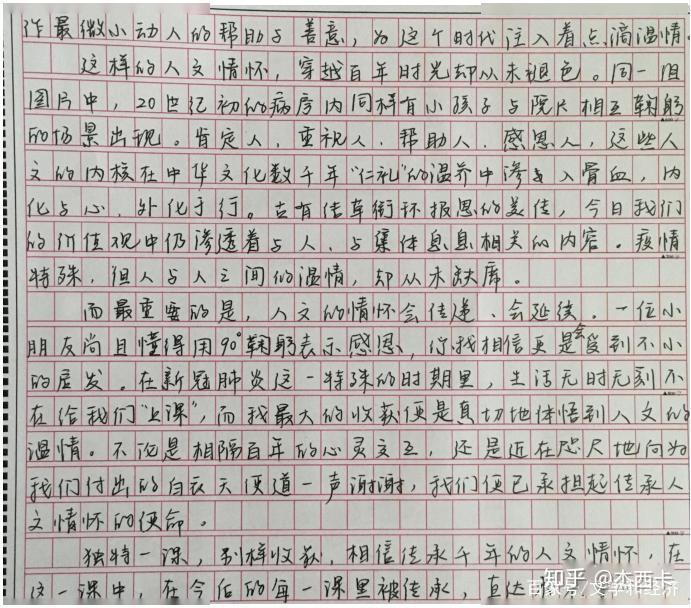 作最微小动人的帮助与善意，为这个时代注入着点滴温情。
这样的人文情怀，穿越百年时光却从未褪色。同一组
图片中，20世纪初的病房内同样有小孩子与院长相互鞠躬
的场景出现。肯定人、重视人、帮助人、感恩人，这些人
文的内核在中华文化数千年“仁礼”的温养中渗入骨血，内
化与心，外化于行。古有结草衔环报恩的美传，今日我们
的价值观中仍渗透着与人、与集体息息相关的内容。疫情
特殊，但人与人之间的温情，却从未缺席。
而最重要的是，人文的情怀会传递、会延续。一位小
朋友尚且懂得用90°鞠躬表示感恩，你我相信更是会受到不小
的启发。在新冠肺炎这一特殊的时期里，生活无时无刻不
在给我们“上课”，而我最大的收获便是真切地体悟到人文的
温情。不论是相隔百年的心灵交互，还是近在咫尺地向为
我们付出的白衣天使道一声谢谢，我们便已承担起传承人
文情怀的使命。
独特一课，别样收获，相信传承千年的人文情怀，在
这一课中，在今后的每一课里被传承，直达
知乎 @杰西卡